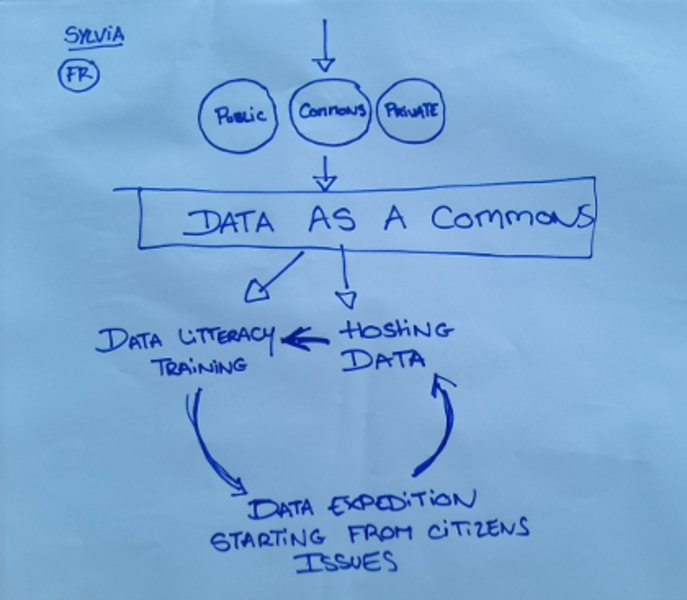 SYLViA
FR
PUBLIC COMMONS PRIVATE
DATA AS A COMMONS
DATA LITTERACY
TRAINING
HOSTING
DATA
DATA EXPEDITION
STARTING FROM CITIZENS
ISSUES